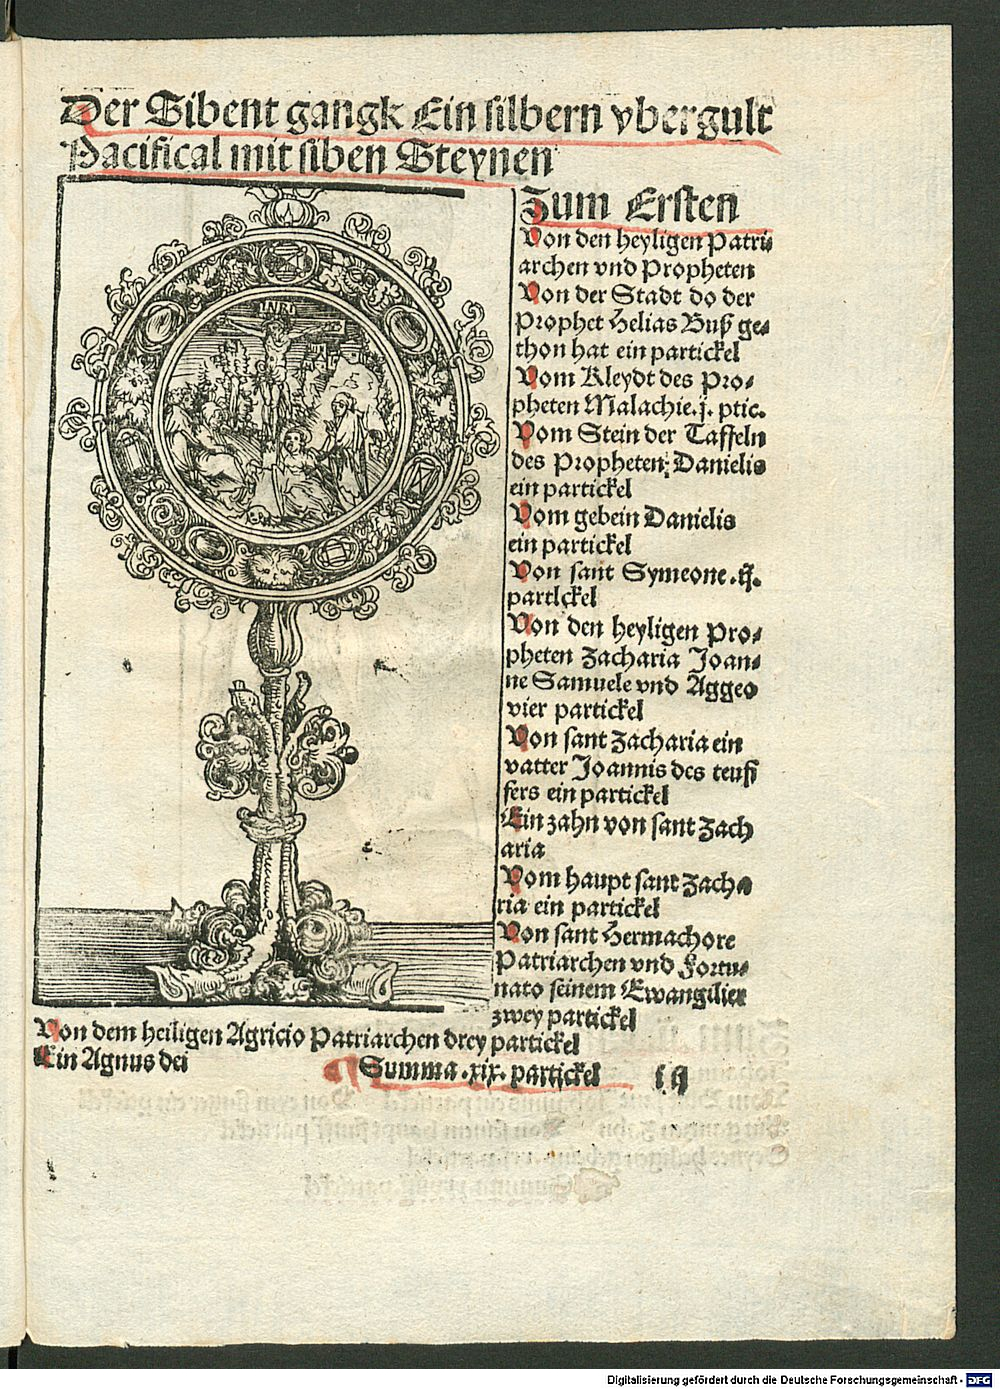 Der Sibent gangk Ein silbern vbergult
Pacifical mit siben Steynen
INRI
Zum Ersten
Von den heyligen Patri⸗
archen vnd Propheten
Von der Stadt do der
Prophet Helias Buß ge⸗
thon hat ein partickel
Vom Kleydt des Pro⸗
pheten Malachie.j. ptic.
Vom Stein der Taffeln
des Propheten Danielis
ein partickel
Vom gebein Danielis
ein partickel
Von sant Symeone.ij.
partickel
Von den heyligen Pro⸗
pheten Zacharia Joan⸗
ne Samuele vnd Aggeo
vier partickel
Von sant Zacharia ein
vatter Joannis des teuf
fers ein partickel
Ein zahn von sant Zach
aria
Vom haupt sant Zacha
ria ein partickel
Von sant Hermachore
Patriarchen vnd Fortu⸗
nato seinem Ewangilier
zwey partickel
Von dem heiligen Agricio Patriarchen drey partickel
Ein Agnus dei
Summa.xix.partickel
Digitalisierung gefördert durch die Deutsche Forschungsgemeinschaft - DFG